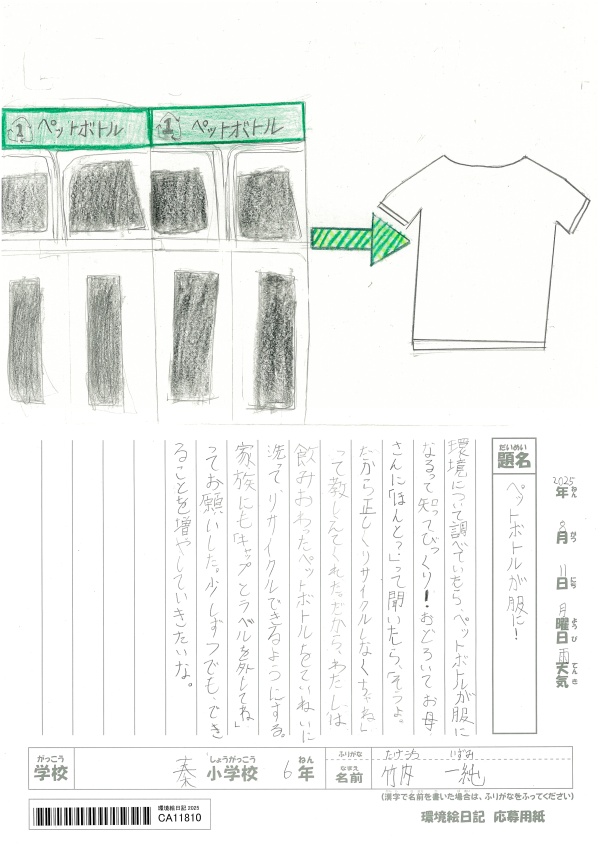 ① ペットボトル
① ペットボトル
だいめい
題名
ペットボトルが服に!
2025年 8月 11日 月曜日 雨天気
ねん がつ にち ようび てんき
環境について調べていたら、ペットボトルが服に
なるって知ってびっくり!おどろいてお母
さんに「ほんと?」って聞いたら、「そうよ。
だから正しくリサイクルしなくちゃね」
って教しえてくれた。だから、わたしは
飲みおわったペットボトルをていねいに
洗って、リサイクルできるようにする。
家族にも「キャップとラベルを外してね」
ってお願いした。少しずつでも、でき
ることを増やしていきたいな。
がっこう しょうがっこう ねん ふりがな たけうち いずみ
学校 秦 小学校 6年 なまえ 名前 竹内 一純
(漢字で名前を書いた場合は、ふりがなをふってください)
環境絵日記 応募用紙
環境絵日記 2025
CA11810